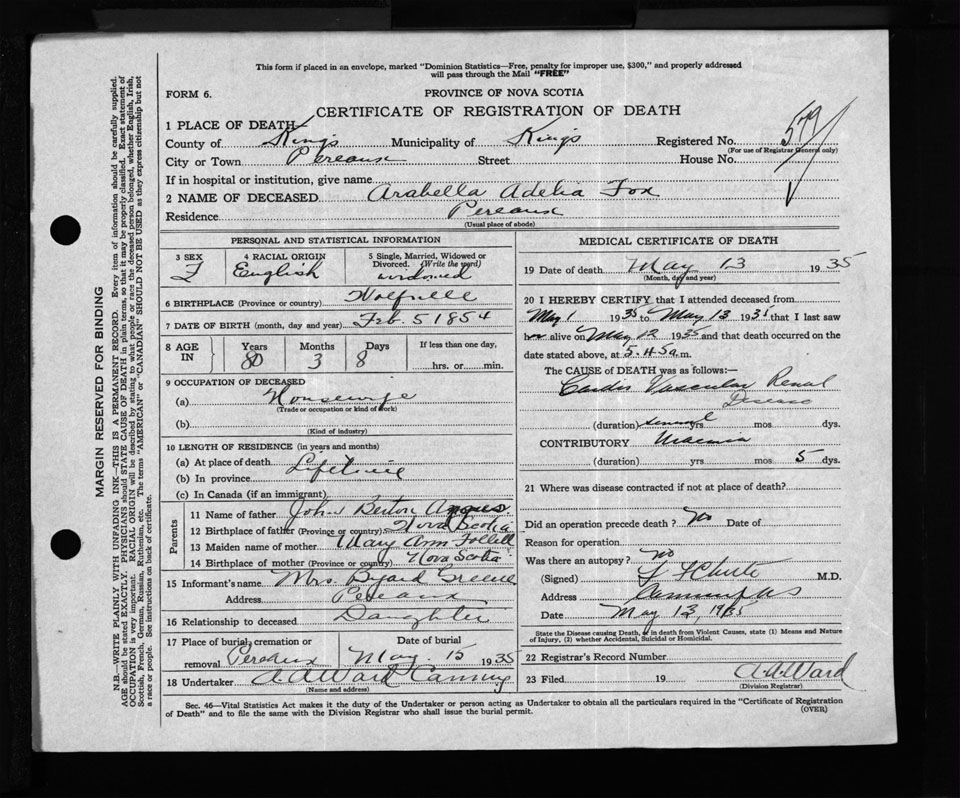 This form if placed in an envelope, marked "Dominion Statistics—Free, penalty for improper use, $300," and properly addressed
will pass through the Mail "FREE"
FORM 6.
PROVINCE OF NOVA SCOTIA
CERTIFICATE OF REGISTRATION OF DEATH
1 PLACE OF DEATH
County of Kings Municipality of Kings Registered No. 579
(For use of Registrar General only)
City or Town Pereaux Street House No.
If in hospital or institution, give name
2 NAME OF DECEASED Arabella Adelia Fox
Residence Pereaux
(Usual place of abode)
PERSONAL AND STATISTICAL INFORMATION
3 SEX 4 RACIAL ORIGIN 5 Single, Married, Widowed or
Divorced. (Write the word)
F English widowed
6 BIRTHPLACE (Province or country) Wolfville
7 DATE OF BIRTH (month, day and year) Feb. 5 1854
8 AGE IN Years Months Days If less than one day,
80 3 8 hrs. or min.
9 OCCUPATION OF DECEASED
(a) Housewife
(Trade or occupation or kind of work)
(b)
(Kind of industry)
10 LENGTH OF RESIDENCE (in years and months)
(a) At place of death Lifetime
(b) In province
(c) In Canada (if an immigrant)
Parents
11 Name of father John Berton Angus
12 Birthplace of father (Province or country) Nova Scotia
13 Maiden name of mother Mary Ann
14 Birthplace of mother (Province or country) Nova Scotia
15 Informant's name Mrs. Byard Greene
Address Pereaux
16 Relationship to deceased Daughter
17 Place of burial, cremation or Date of burial
removal May 15 1935
18 Undertaker A A Ward Canning
(Name and address)
MEDICAL CERTIFICATE OF DEATH
19 Date of death May 13 1935
(Month, day and year)
20 I HEREBY CERTIFY that I attended deceased from
May 1 1935 to May 13 1935 that I last saw
her alive on May 12 1935 and that death occurred on the
date stated above, at 5.45 a.m.
The CAUSE of DEATH was as follows:
Cardio Vascular Renal
Disease
(duration) several yrs mos dys.
CONTRIBUTORY Uraemia
(duration) yrs mos 5 dys.
21 Where was disease contracted if not at place of death?
Did an operation precede death? No Date of
Reason for operation
Was there an autopsy? No
(Signed) M.D.
Address
Date May 13, 1935
State the Disease causing Death, or in death from Violent Causes, state (1) Means and Nature
of Injury, (2) whether Accidental, Suicidal or Homicidal.
22 Registrar's Record Number
23 Filed 19 A.A. Ward
(Division Registrar)
Sec. 46—Vital Statistics Act makes it the duty of the Undertaker or person acting as Undertaker to obtain all the particulars required in the "Certificate of Registration
of Death" and to file the same with the Division Registrar who shall issue the burial permit.
(OVER)
MARGIN RESERVED FOR BINDING
N.B.—WRITE PLAINLY WITH UNFADING INK—THIS IS A PERMANENT RECORD. Every item of information should be carefully supplied.
AGE should be stated EXACTLY. PHYSICIANS should STATE CAUSE OF DEATH in plain terms, so that it may be properly classified. Exact statement of
OCCUPATION is very important. RACIAL ORIGIN will be described by stating to what people or race the deceased person belonged, whether English, Irish,
Scottish, French, German, Russian, Ruthenian, etc. The terms "AMERICAN" or "CANADIAN" SHOULD NOT BE USED as they express citizenship but not
a race or people. See instructions on back of certificate.